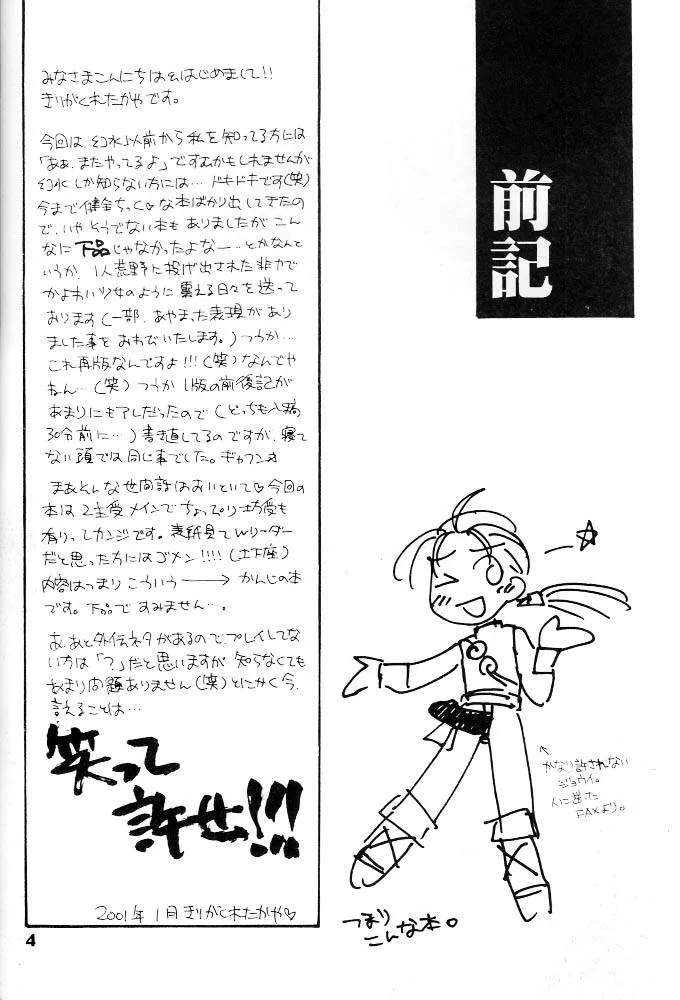 前記
みなさまこんにちは&はじめまして!!
きりがくれたかやです。
今回は、幻水以前から私を知ってる方には
「あぁ、またやってるよ」ですむかもしれませんが
幻水しか知らない方には…ドキドキです(笑)
今まで健全ちっく♡な本ばかり出してきたの
で、いやそうでない本もありましたがこん
なに下品じゃなかったよなー…とかなんと
いうか、1人荒野に投げ出された非力で
かよわい少女のように震える日々を送って
おります(一部、あやまった表現があり
ました事をおわびいたします。)つうか…
これ再版なんですよ!!!(笑)なんでや
ねん…(笑)つうか1版の前後記が
あまりにもアレだったので(どっちも入稿
30分前に…)書き直してるのですが、寝て
ない頭では同じ事でした。ギャフン
まあそんな世間話はおいといて♡今回の
本は2主受メインでちょっぴり坊受も
有りってカンジです。表紙見てWリーダー
だと思った方にはゴメン!!!!(土下座)
内容はつまりこういう→かんじの本
です。下品ですみません…。
あ、あと外伝ネタがあるので、プレイしてな
い方は「?」だと思いますが知らなくても
あまり問題ありません(笑)とにかく今、
言えることは…
笑って
許せ!!!
2001年1月きりがくれたかや♡
4
↖かなり許されない
ジョウイ。
人に送った
FAXより。
つまり
こんな本。